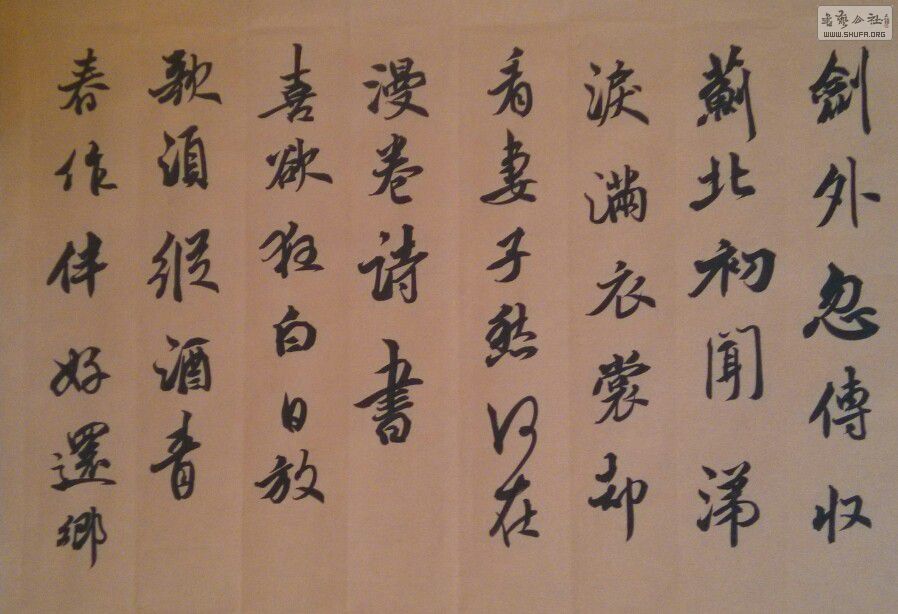 劍外忽傳收
薊北初聞涕
淚滿衣裳却
看妻子愁何在
漫卷詩書
喜欲狂白日放
歌須縱酒青
春作伴好還鄉
书艺公社
WWW.SHUFA.ORG